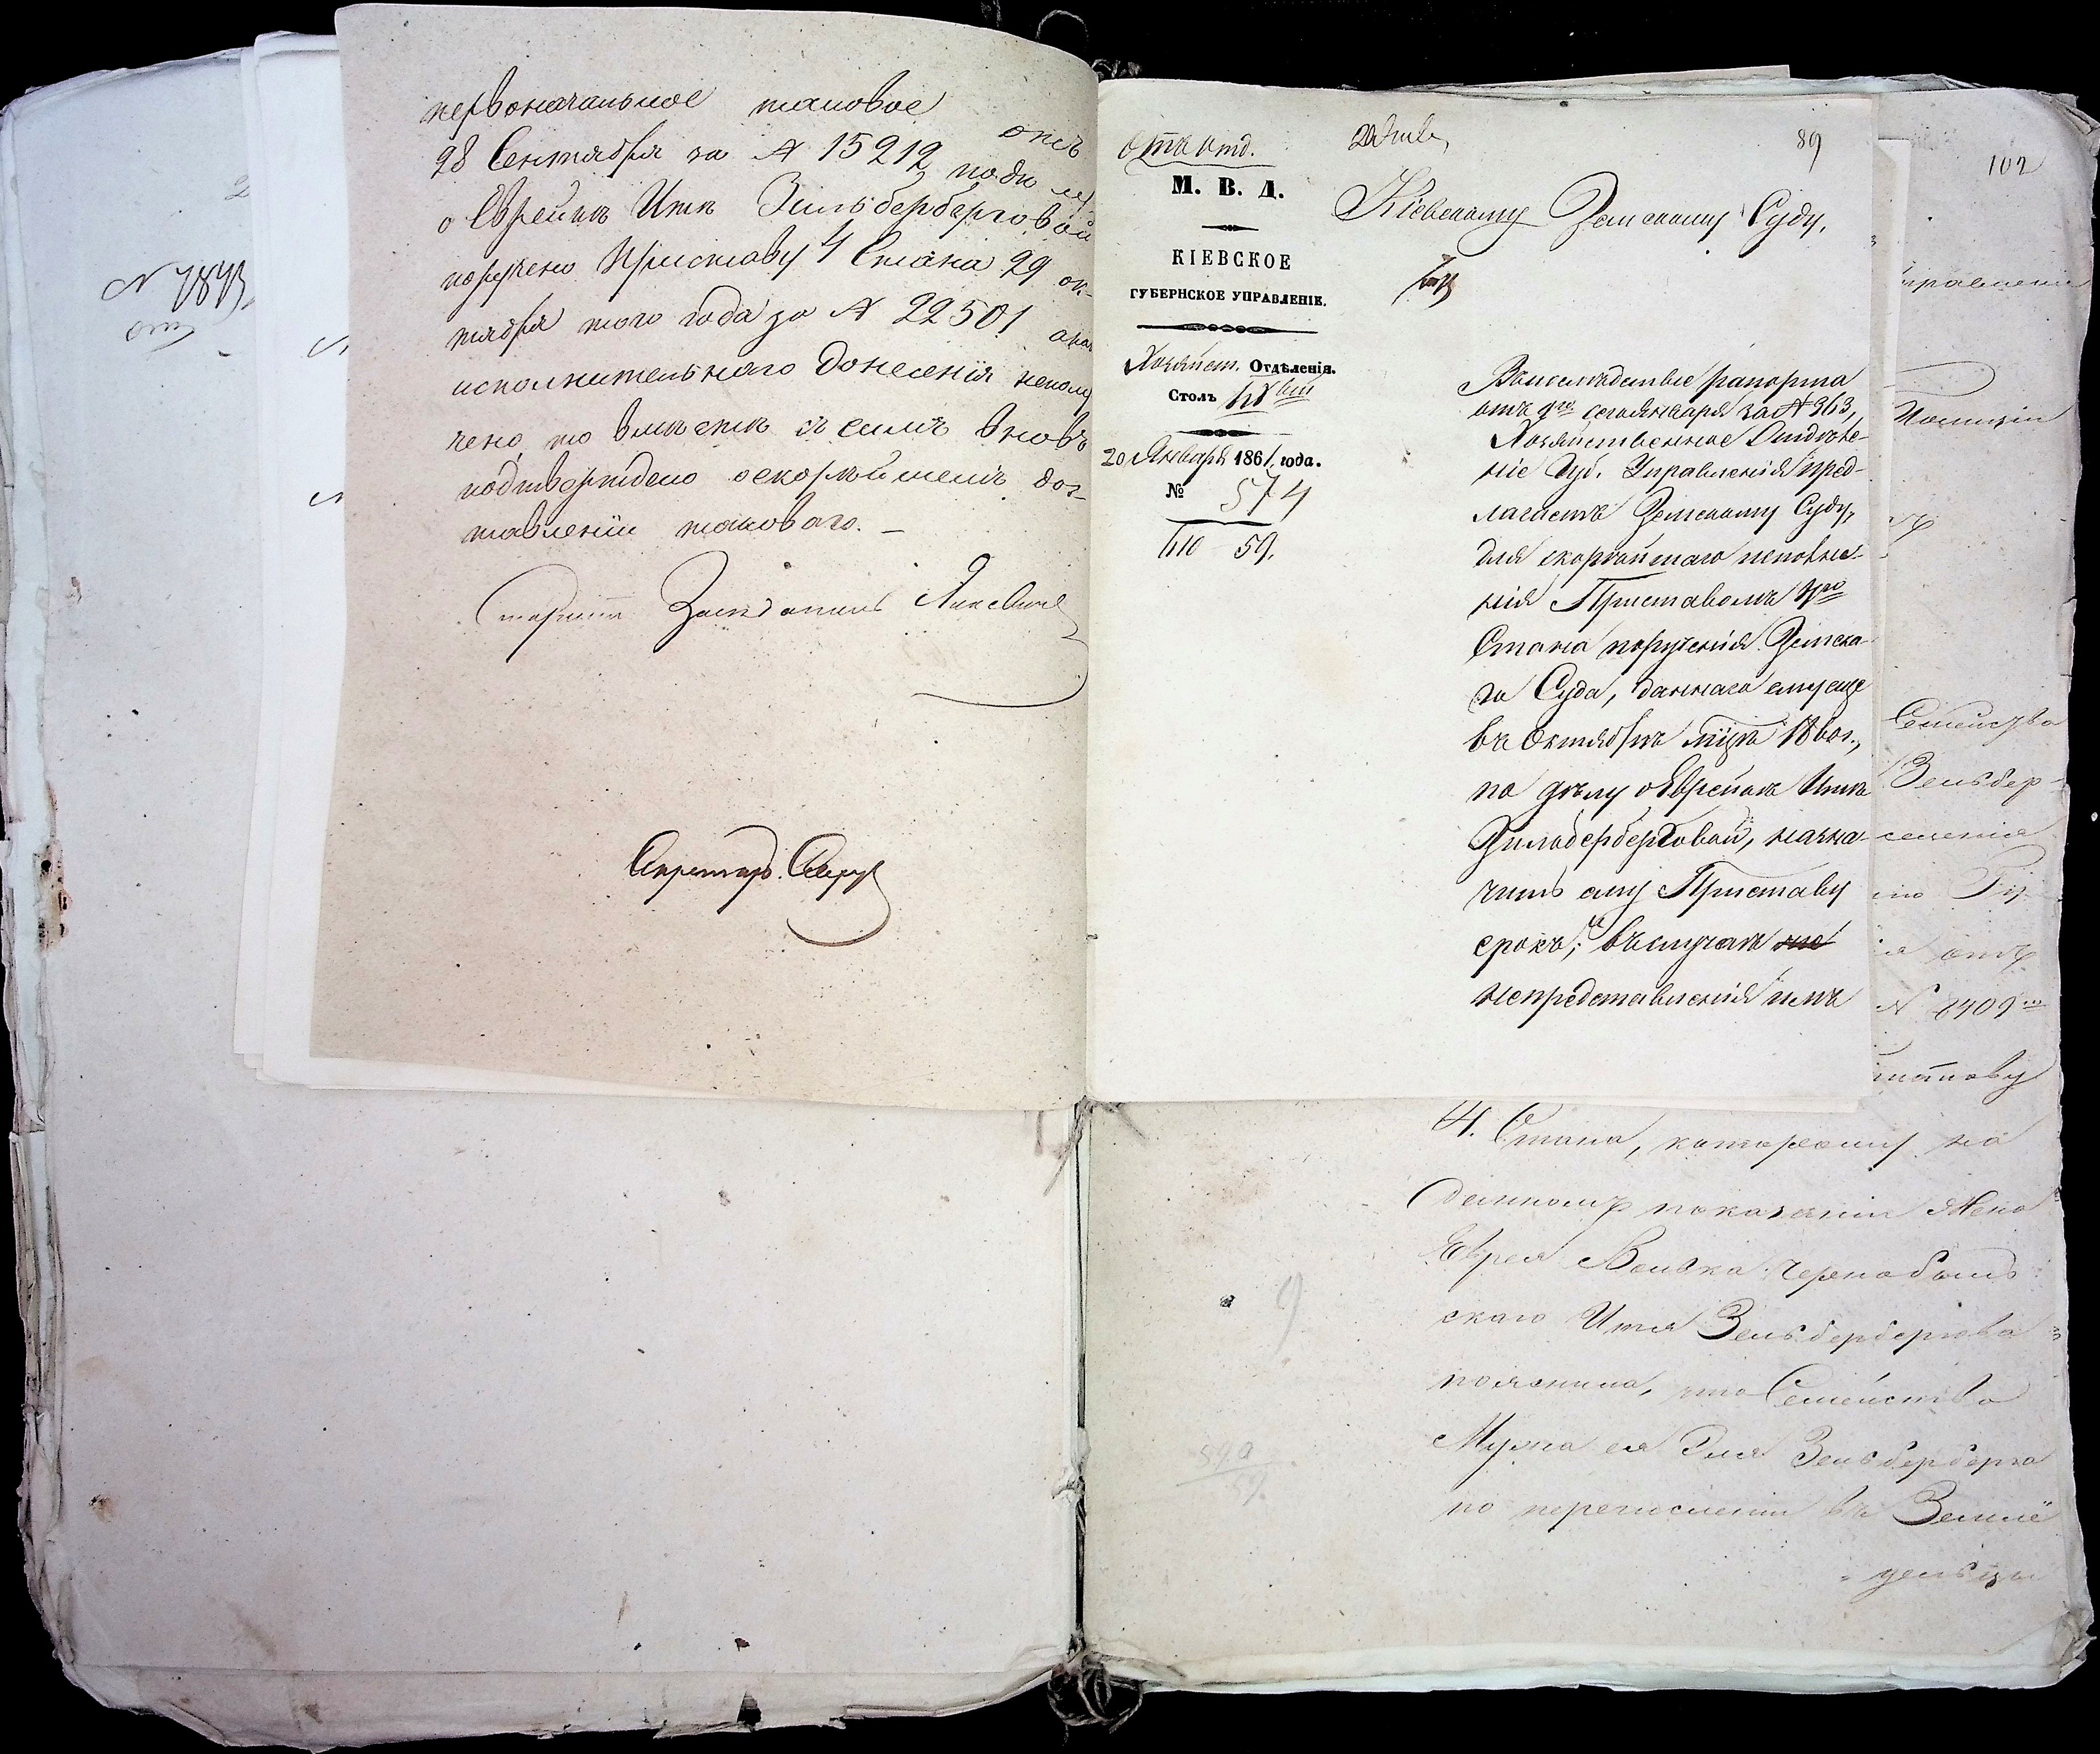 первоначальное таковое отъ
28 Сентября за № 15212 по дѣлу
о Еврейкѣ Иткѣ Зильберберговой
поручено Приставу 4 Стана 29 ок-
тября того года за № 22501
исполнительнаго донесенія неполу
чено, то вмѣстѣ съ симъ вновь
подтверждено о скорѣйшемъ дос-
тавленіи таковаго. —
Старшій Засѣдатель
Секретарь
№ 7873
89
М. В. Д.
КІЕВСКОЕ
ГУБЕРНСКОЕ УПРАВЛЕНІЕ.
Хозяйст. Отдѣленія.
Столъ
20 Января 1861 года.
№ 574
59.
Кіевскому Земскому Суду.
Вслѣдствіе рапорта
отъ 9го сего января за № 363,
Хозяйственное Отдѣле-
ніе Губ. Управленія пред-
лагаетъ Земскому Суду,
для скорѣйшаго исполне-
нія Приставомъ 4го
Стана порученія Земска-
го Суда, даннаго ему еще
въ Октябрѣ мцѣ 1860 г.,
по дѣлу о Еврейкѣ Иткѣ
Зильберберговой, назна-
чить ему Приставу
срокъ, и въ случаѣ не
непредставленія имъ
102
Управленія
Полиціи
Семейства
Зельбер-
селенія
отъ
№ 8409
4. Стана, которому на
данномъ показаніи жена
Еврея Волька Чернобыль
скаго Итля Зельбербергова
пояснила, что Семейство
Мужа ея Эля Зельберберга
по перечисленіи въ Землѣ
дельцы